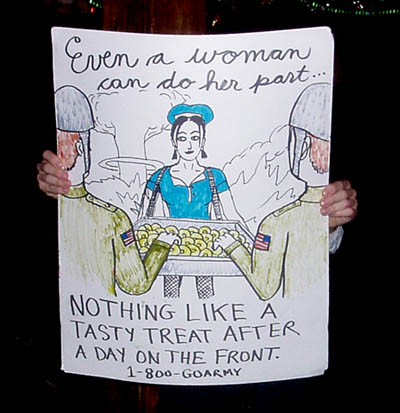 Even a woman
can do her part...
NOTHING LIKE A
TASTY TREAT AFTER
A DAY ON THE FRONT.
1-800-GOARMY